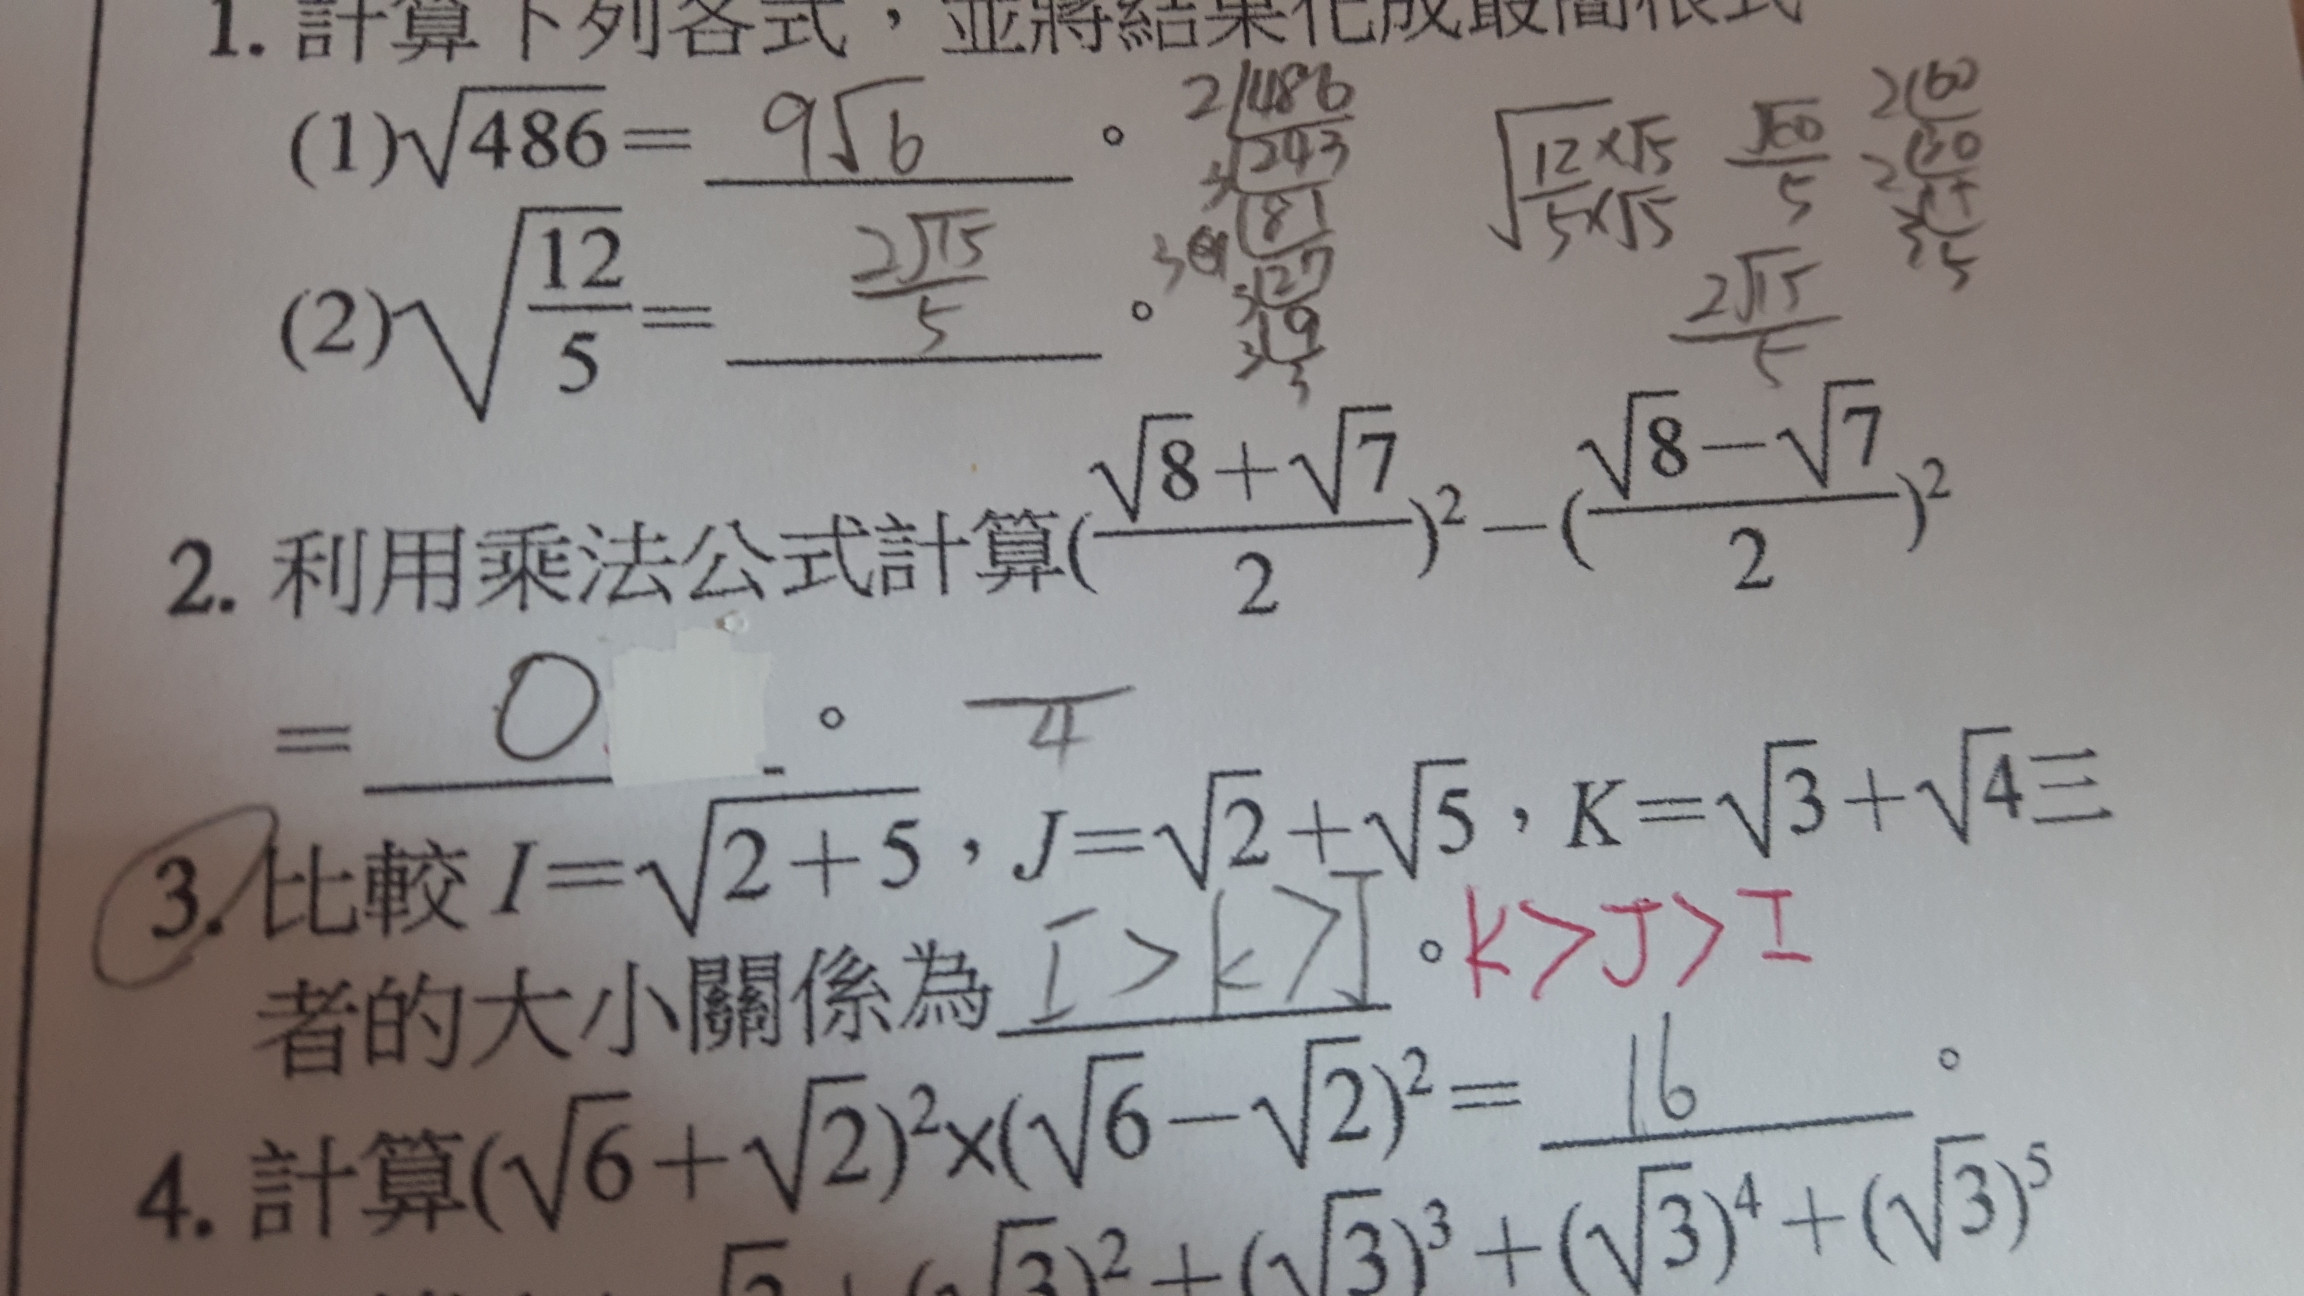 1. 計算下列各式，並將結果化成最簡根式
(1)√486 = 9√6 。
2 486
3 243
3 81
3 27
3 9
3
√(12×√5 / 5×√5) √60/5
2 60
2 30
3 15
5
2√15/5
(2)√(12/5) = 2√15/5 。
2. 利用乘法公式計算((√8+√7)/2)²−((√8−√7)/2)²
= 0 。 /4
3. 比較 I=√(2+5)，J=√2+√5，K=√3+√4三
者的大小關係為 I>k>J 。k>J>I
4. 計算(√6+√2)²×(√6−√2)²= 16 。
(√3)²+(√3)³+(√3)⁴+(√3)⁵